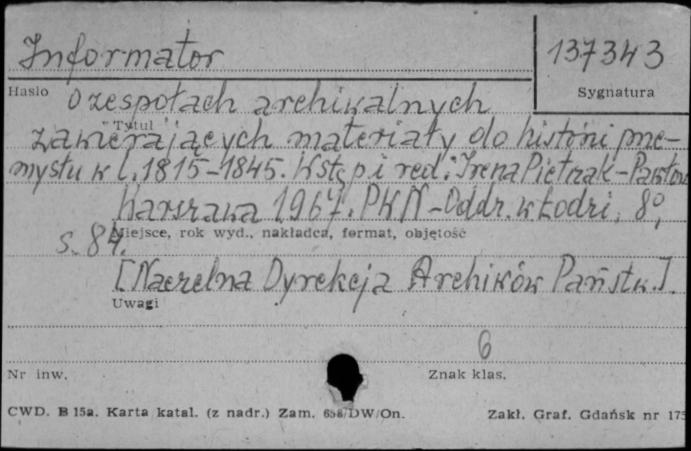 Informator
137343
Hasło
Sygnatura
o zespołach archiwalnych
Tytuł
zawierających materiały do historii prze-
mysłu w l. 1815-1845. Wstęp i red.: Irena Pietrzak-Pawłow
Warszawa 1967. PWN-Oddr. w Łodzi, 8°,
Miejsce, rok wyd., nakładca, format, objętość
s. 84.
[Naczelna Dyrekcja Archiwów Państw.].
Uwagi
6
Nr inw.
Znak klas.
CWD. B 15a. Karta katal. (z nadr.) Zam. DW/On.
Zakł. Graf. Gdańsk nr 175